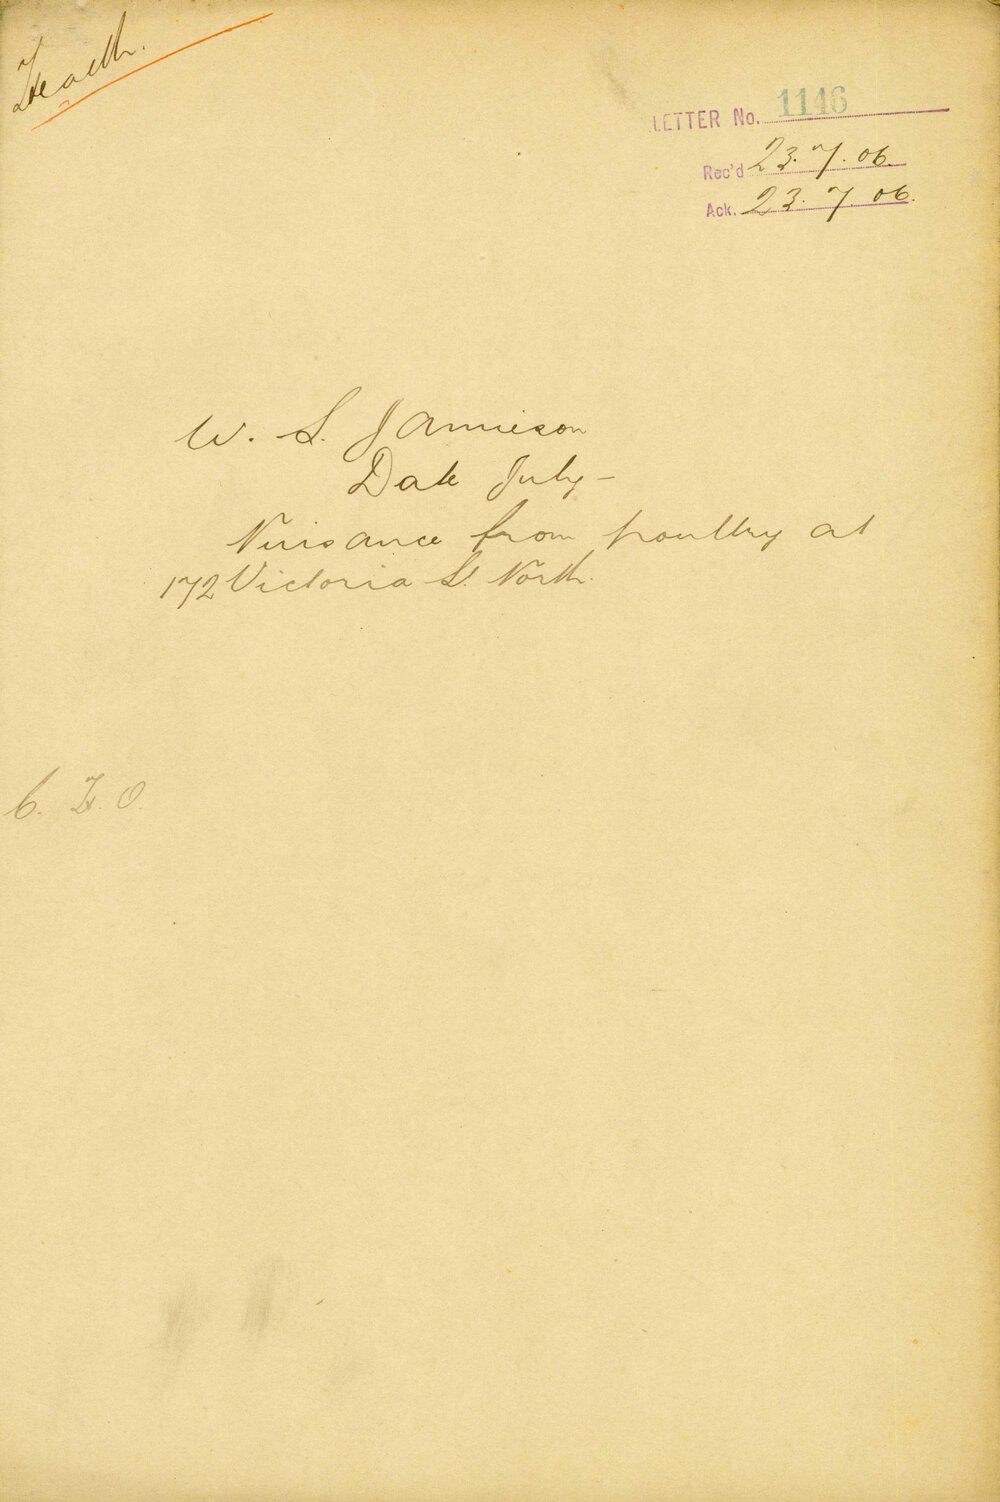 Health.
LETTER No. 1146
Rec'd 23.7.06.
Ack. 23.7.06.
W. S. Jamieson
Date July –
Nuisance from poultry at
172 Victoria St. North.
C. H. O.